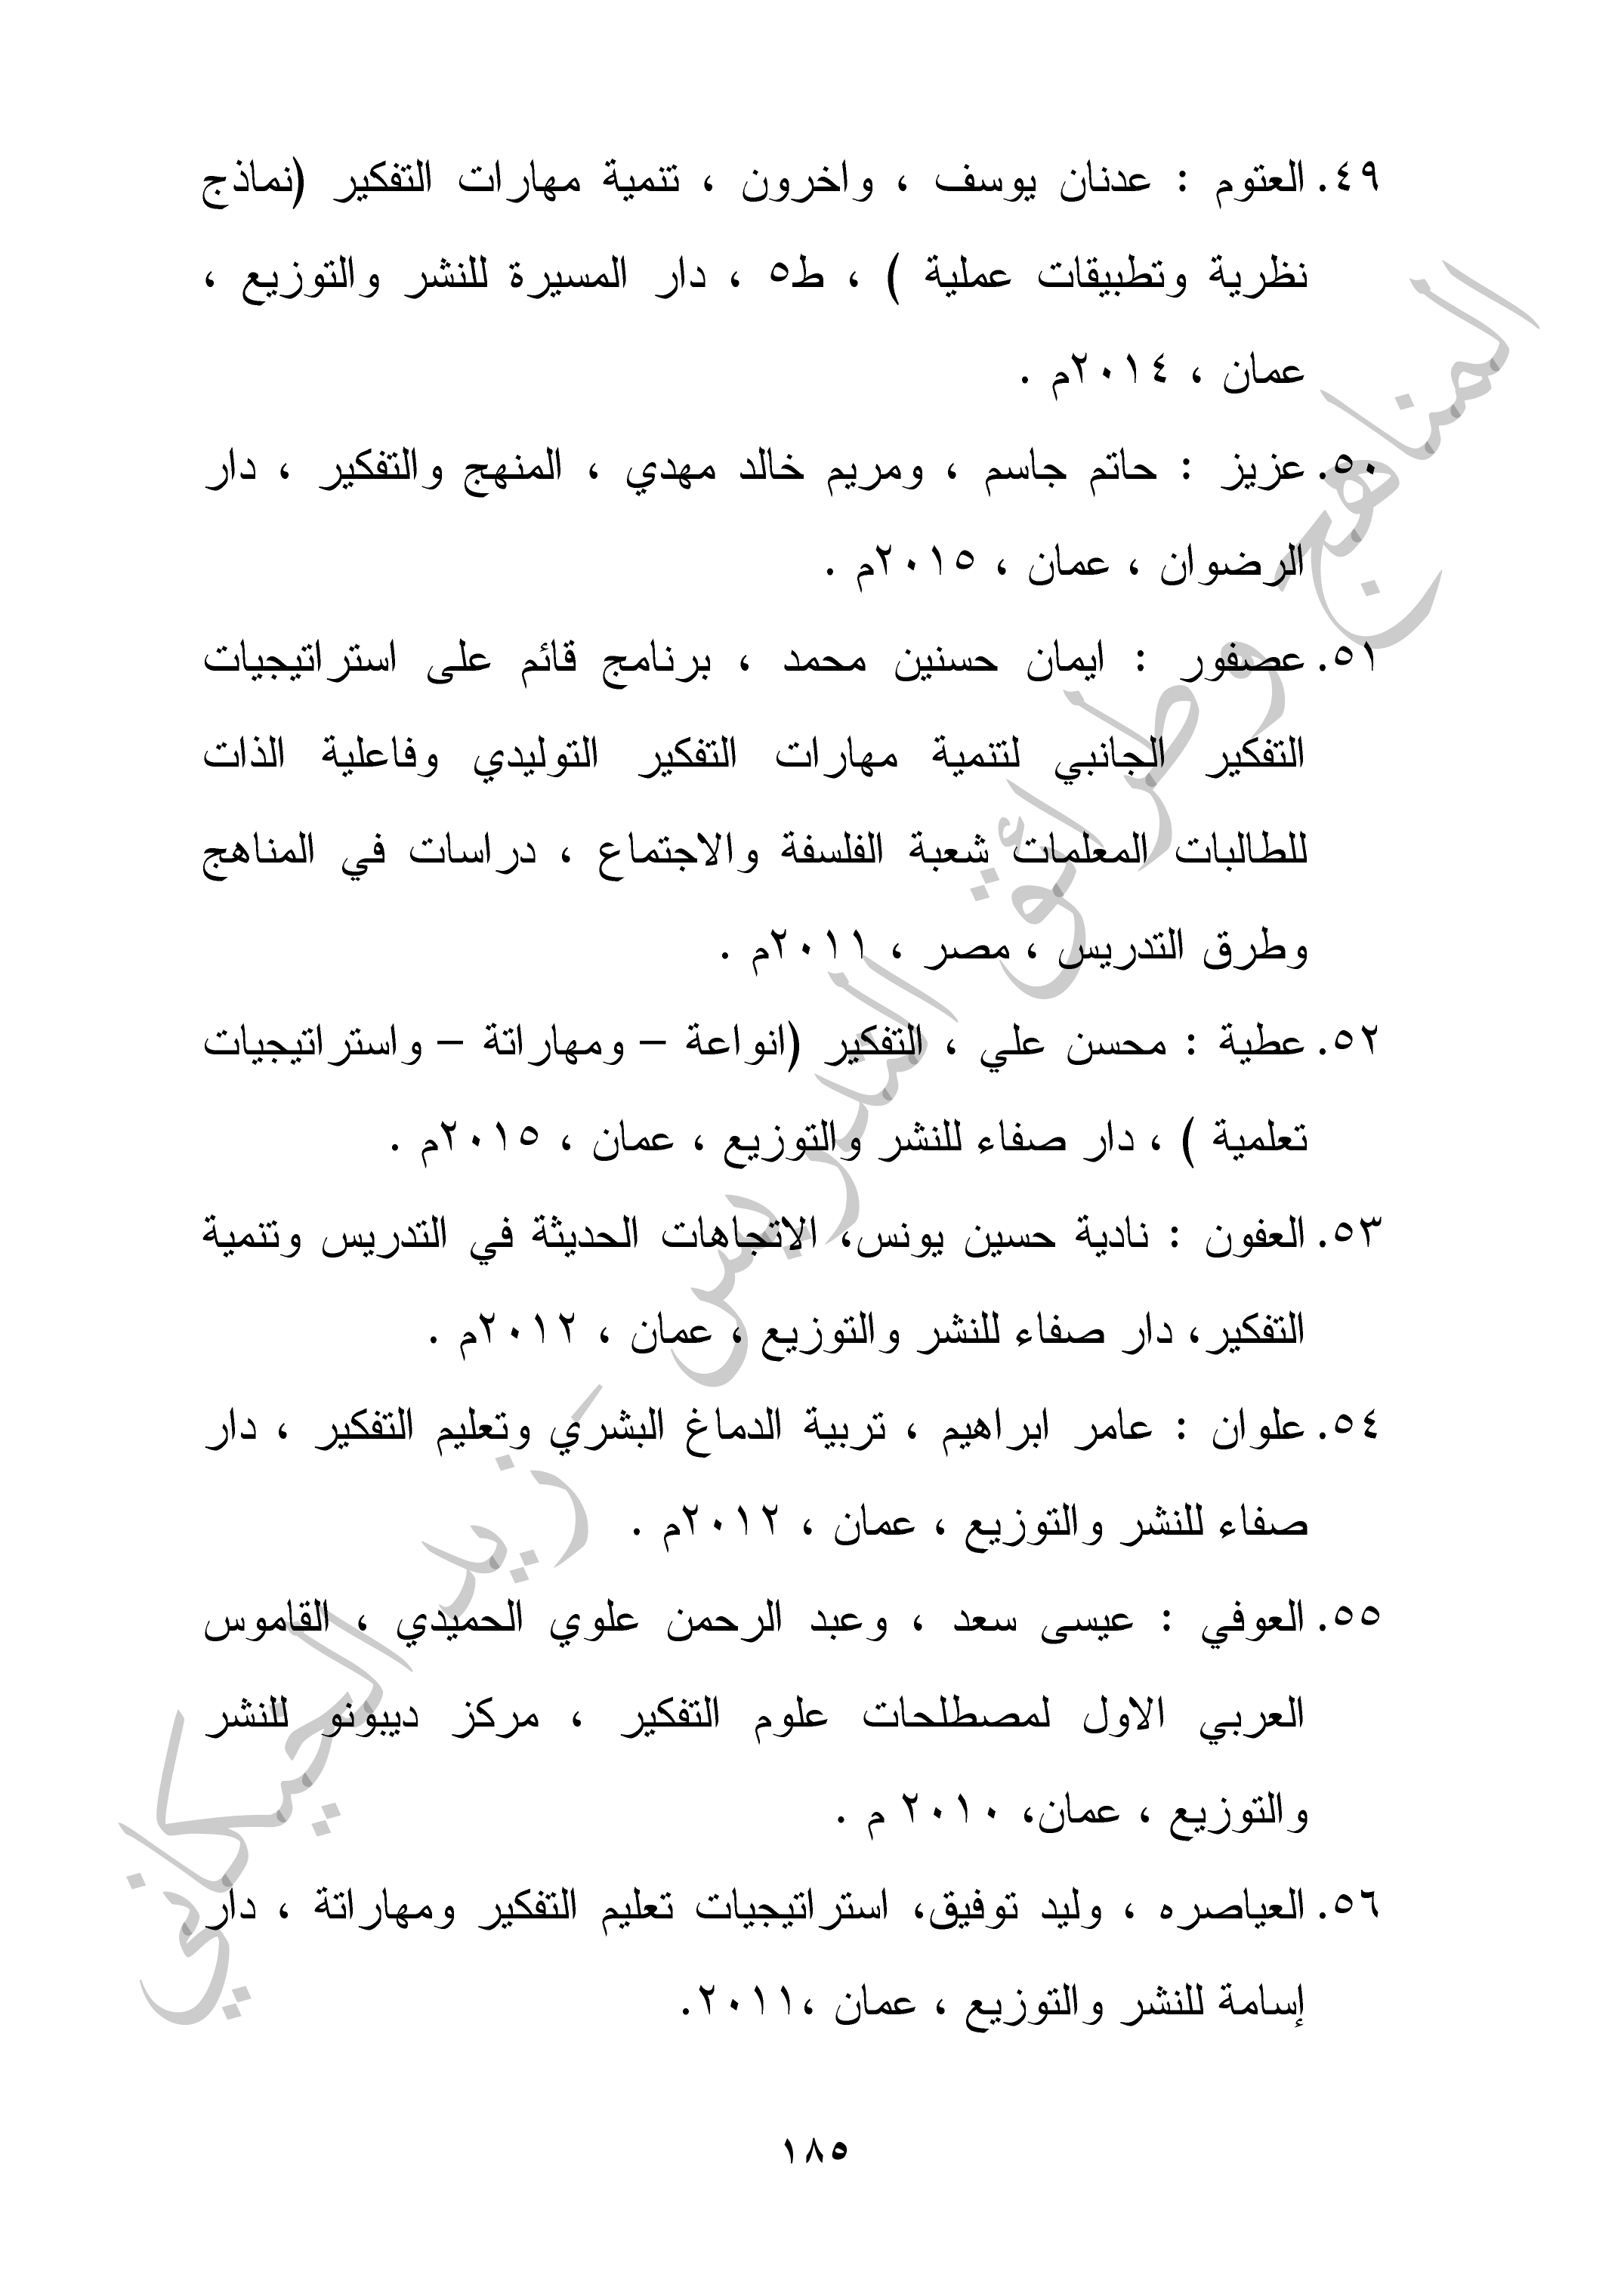 ٤٩. العتوم : عدنان يوسف ، واخرون ، تنمية مهارات التفكير (نماذج
نظرية وتطبيقات عملية ) ، ط٥ ، دار المسيرة للنشر والتوزيع ،
عمان ، ٢٠١٤م .
٥٠. عزيز : حاتم جاسم ، ومريم خالد مهدي ، المنهج والتفكير ، دار
الرضوان ، عمان ، ٢٠١٥م .
٥١. عصفور : ايمان حسنين محمد ، برنامج قائم على استراتيجيات
التفكير الجانبي لتنمية مهارات التفكير التوليدي وفاعلية الذات
للطالبات المعلمات شعبة الفلسفة والاجتماع ، دراسات في المناهج
وطرق التدريس ، مصر ، ٢٠١١م .
٥٢. عطية : محسن علي ، التفكير (انواعة – ومهاراتة – واستراتيجيات
تعلمية ) ، دار صفاء للنشر والتوزيع ، عمان ، ٢٠١٥م .
٥٣. العفون : نادية حسين يونس، الاتجاهات الحديثة في التدريس وتنمية
التفكير، دار صفاء للنشر والتوزيع ، عمان ، ٢٠١٢م .
٥٤. علوان : عامر ابراهيم ، تربية الدماغ البشري وتعليم التفكير ، دار
صفاء للنشر والتوزيع ، عمان ، ٢٠١٢م .
٥٥. العوفي : عيسى سعد ، وعبد الرحمن علوي الحميدي ، القاموس
العربي الاول لمصطلحات علوم التفكير ، مركز ديبونو للنشر
والتوزيع ، عمان، ٢٠١٠ م .
٥٦. العياصره ، وليد توفيق، استراتيجيات تعليم التفكير ومهاراتة ، دار
إسامة للنشر والتوزيع ، عمان ،٢٠١١.
١٨٥
المناهج وطرائق التدريس – زيد الحيكاني